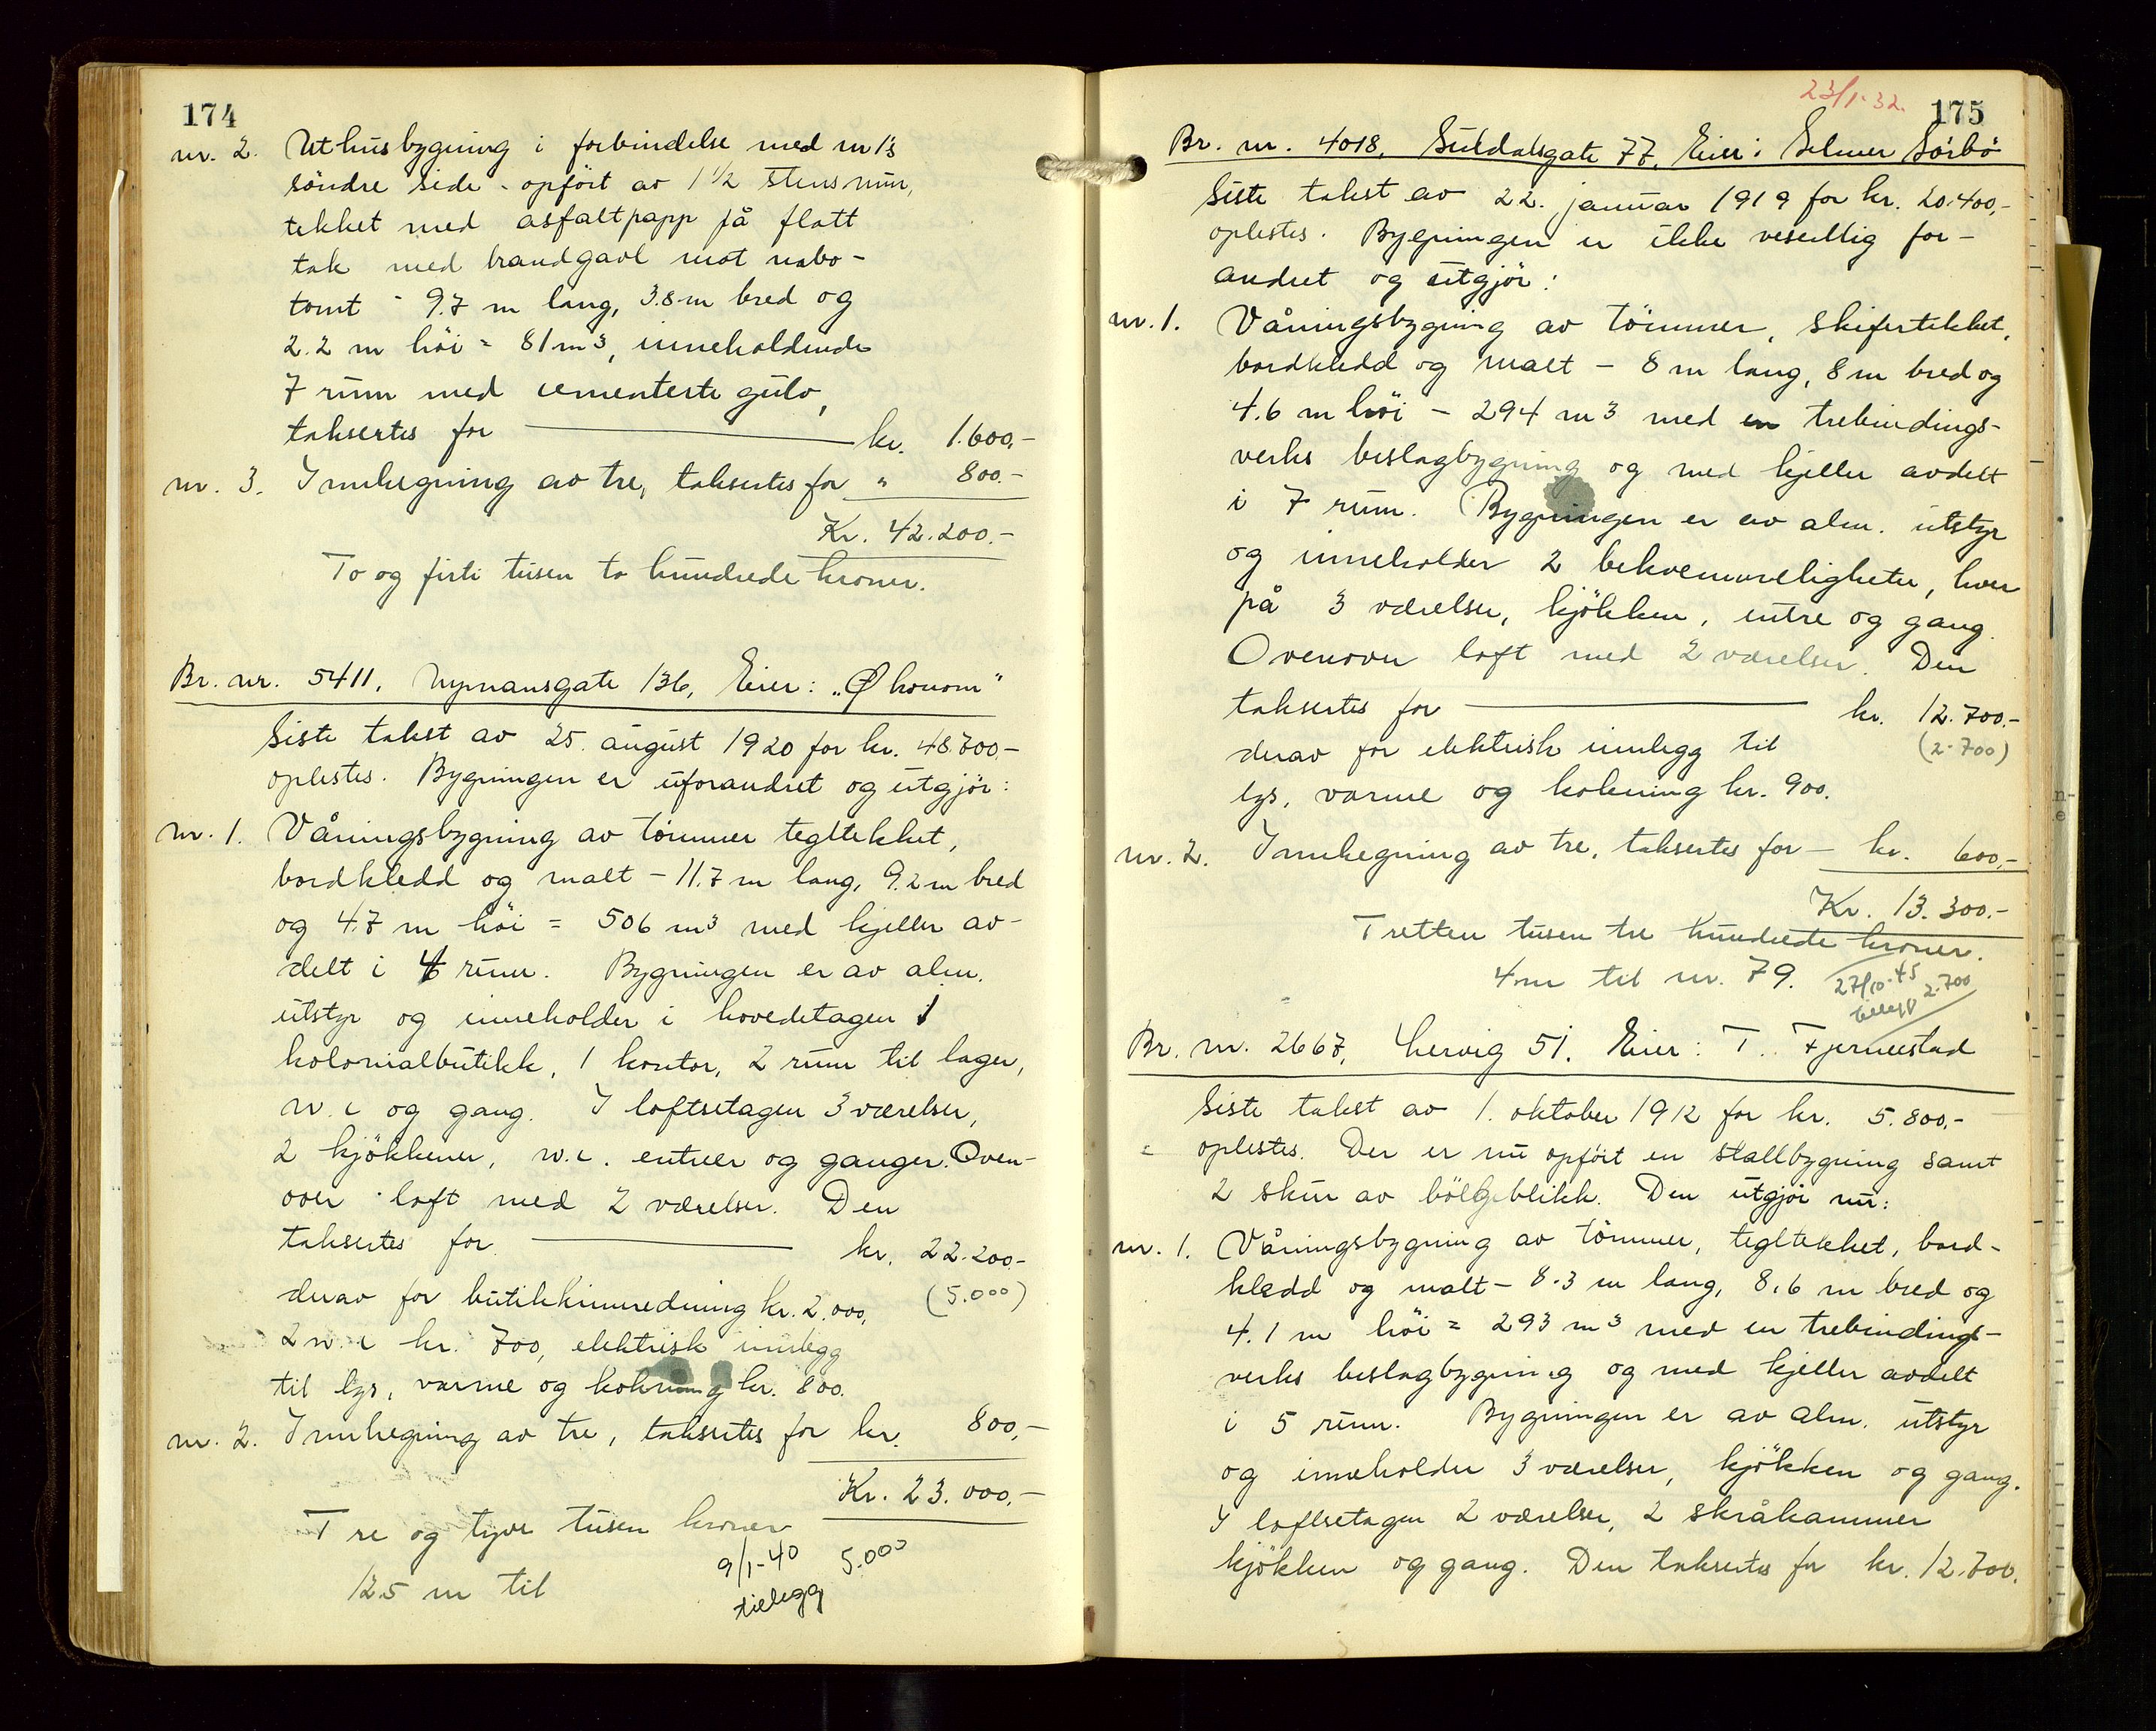 174
nr. 2. Uthusbygning i forbindelse med nr 1's
söndre side - opfört av 1 1/2 stens mur,
tekket med asfaltpapp på flatt
tak med brandgavl mot nabo-
tomt - 9.7 m lang, 3.8 m bred og
2.2 m höi = 81 m3, inneholdende
7 rum med cementerte gulv,
taksertes for kr. 1.600,-
nr. 3. Innhegning av tre, taksertes for " 800.-
Kr. 42.200.-
To og firti tusen to hundrede kroner.
Br. nr. 5411, Nymansgate 136, Eier: "Økonom"
Siste takst av 25. august 1920 for kr. 48.700,-
oplestes. Bygningen er uforandret og utgjör:
nr. 1. Våningsbygning av tömmer tegltekket,
bordkledd og malt - 11.7 m lang, 9.2 m bred
og 4.7 m höi = 506 m3 med kjeller av-
delt i rum. Bygningen er av alm.
utstyr og inneholder i hovedetagen 1
kolonialbutikk, 1 kontor, 2 rum til lager,
w.c og gang. I loftsetagen 3 værelser,
2 kjökkener, w.c. entreer og ganger. Oven-
over loft med 2 værelser. Den
taksertes for kr. 22.200.-
derav for butikkinnredning kr. 2.000, (5.000)
2 w.c kr. 700, elektrisk innlegg
til lys, varme og kokning kr. 800.
nr. 2. Innhegning av tre, taksertes for kr. 800,-
Kr. 23.000,-
Tre og tyve tusen kroner
9/1-40 5.000
125 m til tillegg
23/1-32. 175
Br. nr. 4018, Suldalsgate 77, Eier: Selmer Sörbö
Siste takst av 22. januar 1919 for kr. 20.400,-
oplestes. Bygningen er ikke vesentlig for-
andret og utgjör:
nr. 1. Våningsbygning av tömmer, skifertekket,
bordkledd og malt - 8 m lang, 8 m bred og
4.6 m höi - 294 m3 med en trebindings-
verks beslagbygning og med kjeller avdelt
i 7 rum. Bygningen er av alm. utstyr
og inneholder 2 bekvemmeligheter, hver
på 3 værelser, kjökken, entre og gang.
Ovenover loft med 2 værelser. Den
taksertes for kr. 12.700.-
derav for elektrisk innlegg til (2.700)
lys, varme og kokning kr. 900.
nr. 2. Innhegning av tre, taksertes for - kr. 600,-
Kr. 13.300.-
Tretten tusen tre hundrede kroner.
4 m til nr. 79. 27/10-45 2.700
tillegg
Br. nr. 2667, Lervig 51. Eier: T. Fjermestad
Siste takst av 1. oktober 1912 for kr. 5.800,-
oplestes. Der er nu opfört en stallbygning samt
2 skur av bölgeblikk. Den utgjör nu:
nr. 1. Våningsbygning av tömmer, tegltekket, bord-
kledd og malt - 8.3 m lang, 8.6 m bred og
4.1 m höi = 293 m3 med en trebindings-
verks beslagbygning og med kjeller avdelt
i 5 rum. Bygningen er av alm. utstyr
og inneholder 3 værelser, kjökken og gang.
I loftsetagen 2 værelser, 2 skråkammer
kjökken og gang. Den taksertes for kr. 12.700.